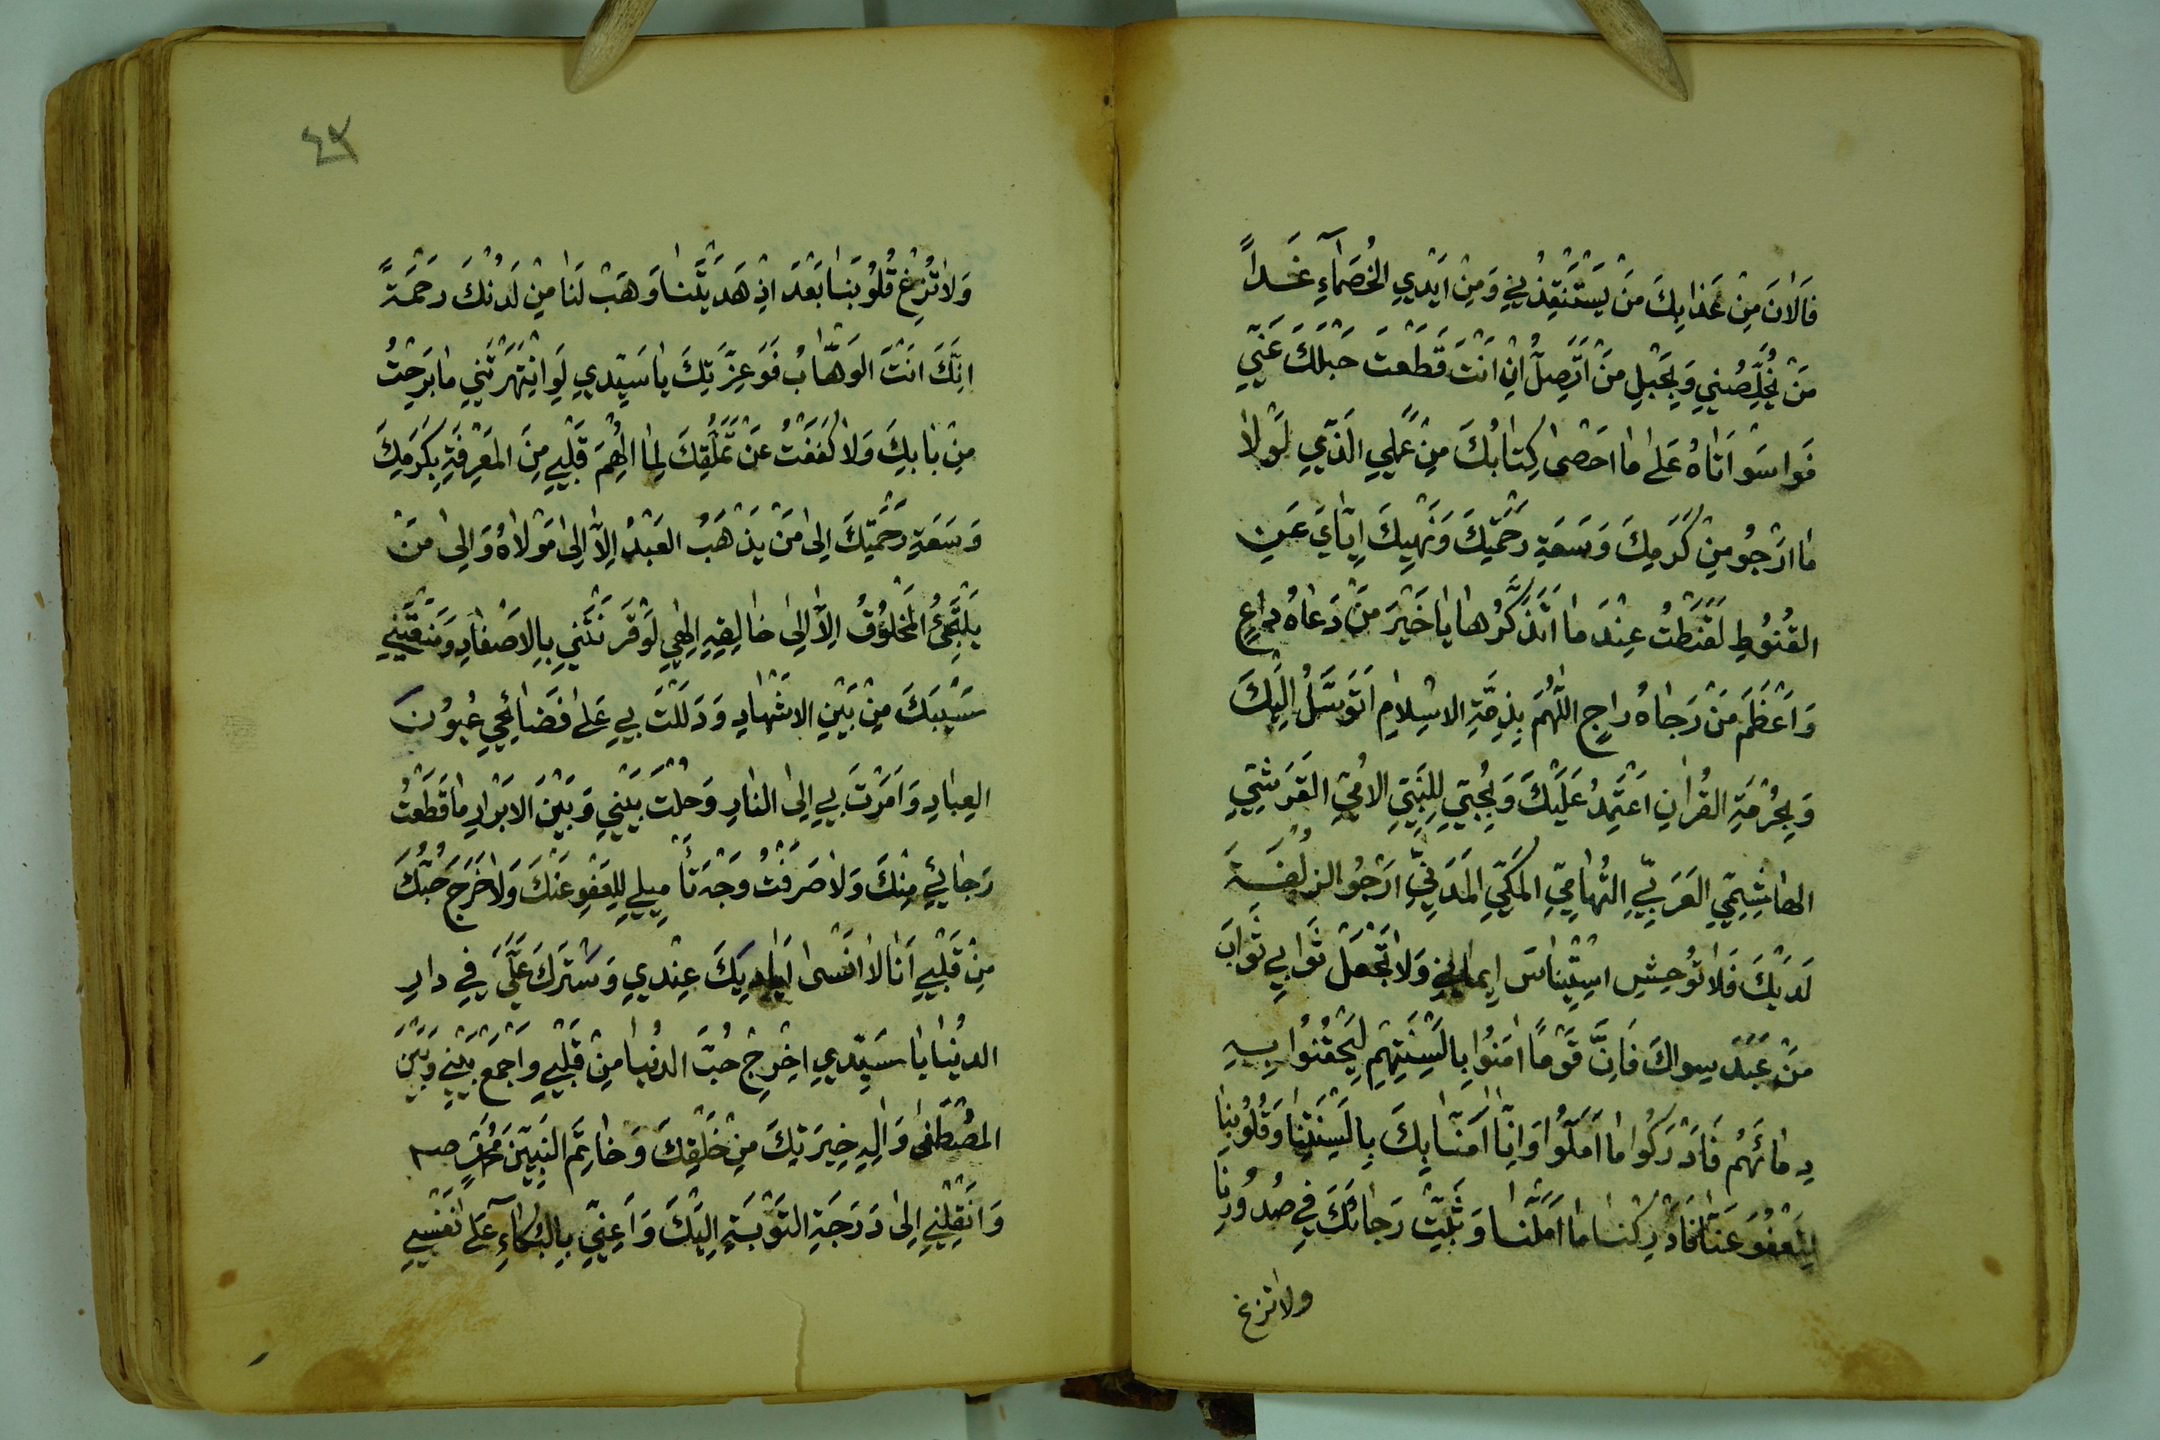 فَالْاٰنَ مِنْ عَذابِكَ مَنْ يَسْتَنْقِذُنِي وَمِنْ اَيْدِي الخُصَمآءِ غَداً
مَنْ يُخَلِّصُنِي وَبِحَبْلِ مَنْ اَتَّصِلُ اِنْ اَنْتَ قَطَعْتَ حَبْلَكَ عَنِّي
فَواسَوْاَتاهُ عَلىٰ ما اَحْصىٰ كِتابُكَ مِنْ عَمَلِي الَّذِي لَوْلا
ما اَرْجُو مِنْ كَرَمِكَ وَسَعَةِ رَحْمَتِكَ وَنَهْيِكَ اِيّايَ عَنِ
القُنُوطِ لَقَنَطْتُ عِنْدَ ما اَتَذَكَّرُها يا خَيْرَ مَنْ دَعاهُ داعٍ
وَاَعْظَمَ مَنْ رَجاهُ راجٍ اللّٰهُمَّ بِذِمَّةِ الاِسْلامِ اَتَوَسَّلُ اِلَيْكَ
وَبِحُرْمَةِ القُرْاٰنِ اَعْتَمِدُ عَلَيْكَ وَبِحُبِّي لِلنَّبِيِّ الاُمِّيِّ القَرَشِيِّ
الهاشِمِيِّ العَرَبِيِّ التُّهامِيِّ المَكِّيِّ المَدَنِيِّ اَرْجُو الزُّلْفَةَ
لَدَيْكَ فَلا تُوحِشِ اسْتِيْناسَ اِيمانِي وَلا تَجْعَلْ ثَوابِي ثَوابَ
مَنْ عَبَدَ سِواكَ فَاِنَّ قَوْماً اٰمَنُوا بِاَلْسِنَتِهِمْ لِيَحْقُنُوا بِهِ
دِمائَهُمْ فَاَدْرَكُوا ما اَمَّلُوا وَاِنّا اٰمَنّا بِكَ بِاَلْسِنَتِنا وَقُلُوبِنا
لِتَعْفُوَ عَنّا فَاَدْرِكْنا ما اَمَّلْنا وَثَبِّتْ رَجائَكَ فِي صُدُورِنا
ولا تزغ
٤٣
وَلا تُزِغْ قُلُوبَنا بَعْدَ اِذْ هَدَيْتَنا وَهَبْ لَنا مِنْ لَدُنْكَ رَحْمَةً
اِنَّكَ اَنْتَ الوَهّابُ فَوَعِزَّتِكَ يا سَيِّدِي لَوِ انْتَهَرْتَنِي ما بَرِحْتُ
مِنْ بابِكَ وَلا كَفَفْتُ عَنْ تَمَلُّقِكَ لِما اُلْهِمَ قَلْبِي مِنَ المَعْرِفَةِ بِكَرَمِكَ
وَسَعَةِ رَحْمَتِكَ اِلىٰ مَنْ يَذْهَبُ العَبْدُ اِلّا اِلىٰ مَوْلاهُ وَاِلىٰ مَنْ
يَلْتَجِئُ المَخْلُوقُ اِلّا اِلىٰ خالِقِهِ اِلٰهِي لَوْ قَرَنْتَنِي بِالاَصْفادِ وَمَنَعْتَنِي
سَيْبَكَ مِنْ بَيْنِ الاَشْهادِ وَدَلَلْتَ بِي عَلىٰ فَضائِحِي عُيُونَ
العِبادِ وَاَمَرْتَ بِي اِلىٰ النارِ وَحُلْتَ بَيْنِي وَبَيْنَ الاَبْرارِ ما قَطَعْتُ
رَجائِي مِنْكَ وَلا صَرَفْتُ وَجْهَ تَأْمِيلِي لِلعَفْوِ عَنْكَ وَلا خَرَجَ حُبُّكَ
مِنْ قَلْبِي اَنا لا اَنْسىٰ اَيادِيَكَ عِنْدِي وَسَتْرَكَ عَلَيَّ فِي دارِ
الدُنْيا يا سَيِّدِي اَخْرِجْ حُبَّ الدُنْيا مِنْ قَلْبِي وَاجْمَعْ بَيْنِي وَبَيْنَ
المُصْطَفىٰ وَاٰلِهِ خِيَرَتِكَ مِنْ خَلْقِكَ وَخاتِمِ النَبِيِّينَ مُحَمَّدٍ صم
وَانْقُلْنِي اِلىٰ دَرَجَةِ التَوْبَةِ اِلَيْكَ وَاَعِنِّي بِالبُكاءِ عَلىٰ نَفْسِي